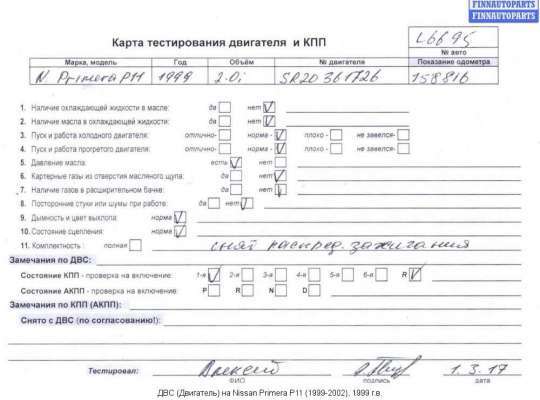 FINNAUTOPARTS
FINNAUTOPARTS
Карта тестирования двигателя и КПП
L6695
№ авто
Марка, модель Год Объём № двигателя Показание одометра
N Primera P11 1999 2.0i SR20361726 158816
1. Наличие охлаждающей жидкости в масле: да нет
2. Наличие масла в охлаждающей жидкости: да нет
3. Пуск и работа холодного двигателя: отлично- норма - плохо - не завелся-
4. Пуск и работа прогретого двигателя: отлично- норма - плохо - не завелся-
5. Давление масла: есть нет
6. Картерные газы из отверстия масляного щупа: да нет
7. Наличие газов в расширительном бачке: да нет
8. Посторонние стуки или шумы при работе: да нет
9. Дымность и цвет выхлопа: норма
10. Состояние сцепления: норма
11. Комплектность : полная снят распред. зажигания
Замечания по ДВС:
Состояние КПП - проверка на включение: 1-я 2-я 3-я 4-я 5-я 6-я R
Состояние АКПП - проверка на включение: P R N D
Замечания по КПП (АКПП):
Снято с ДВС (по согласованию!):
Тестировал: Алексей 1.3.17
ФИО подпись дата
ДВС (Двигатель) на Nissan Primera P11 (1999-2002), 1999 г.в.